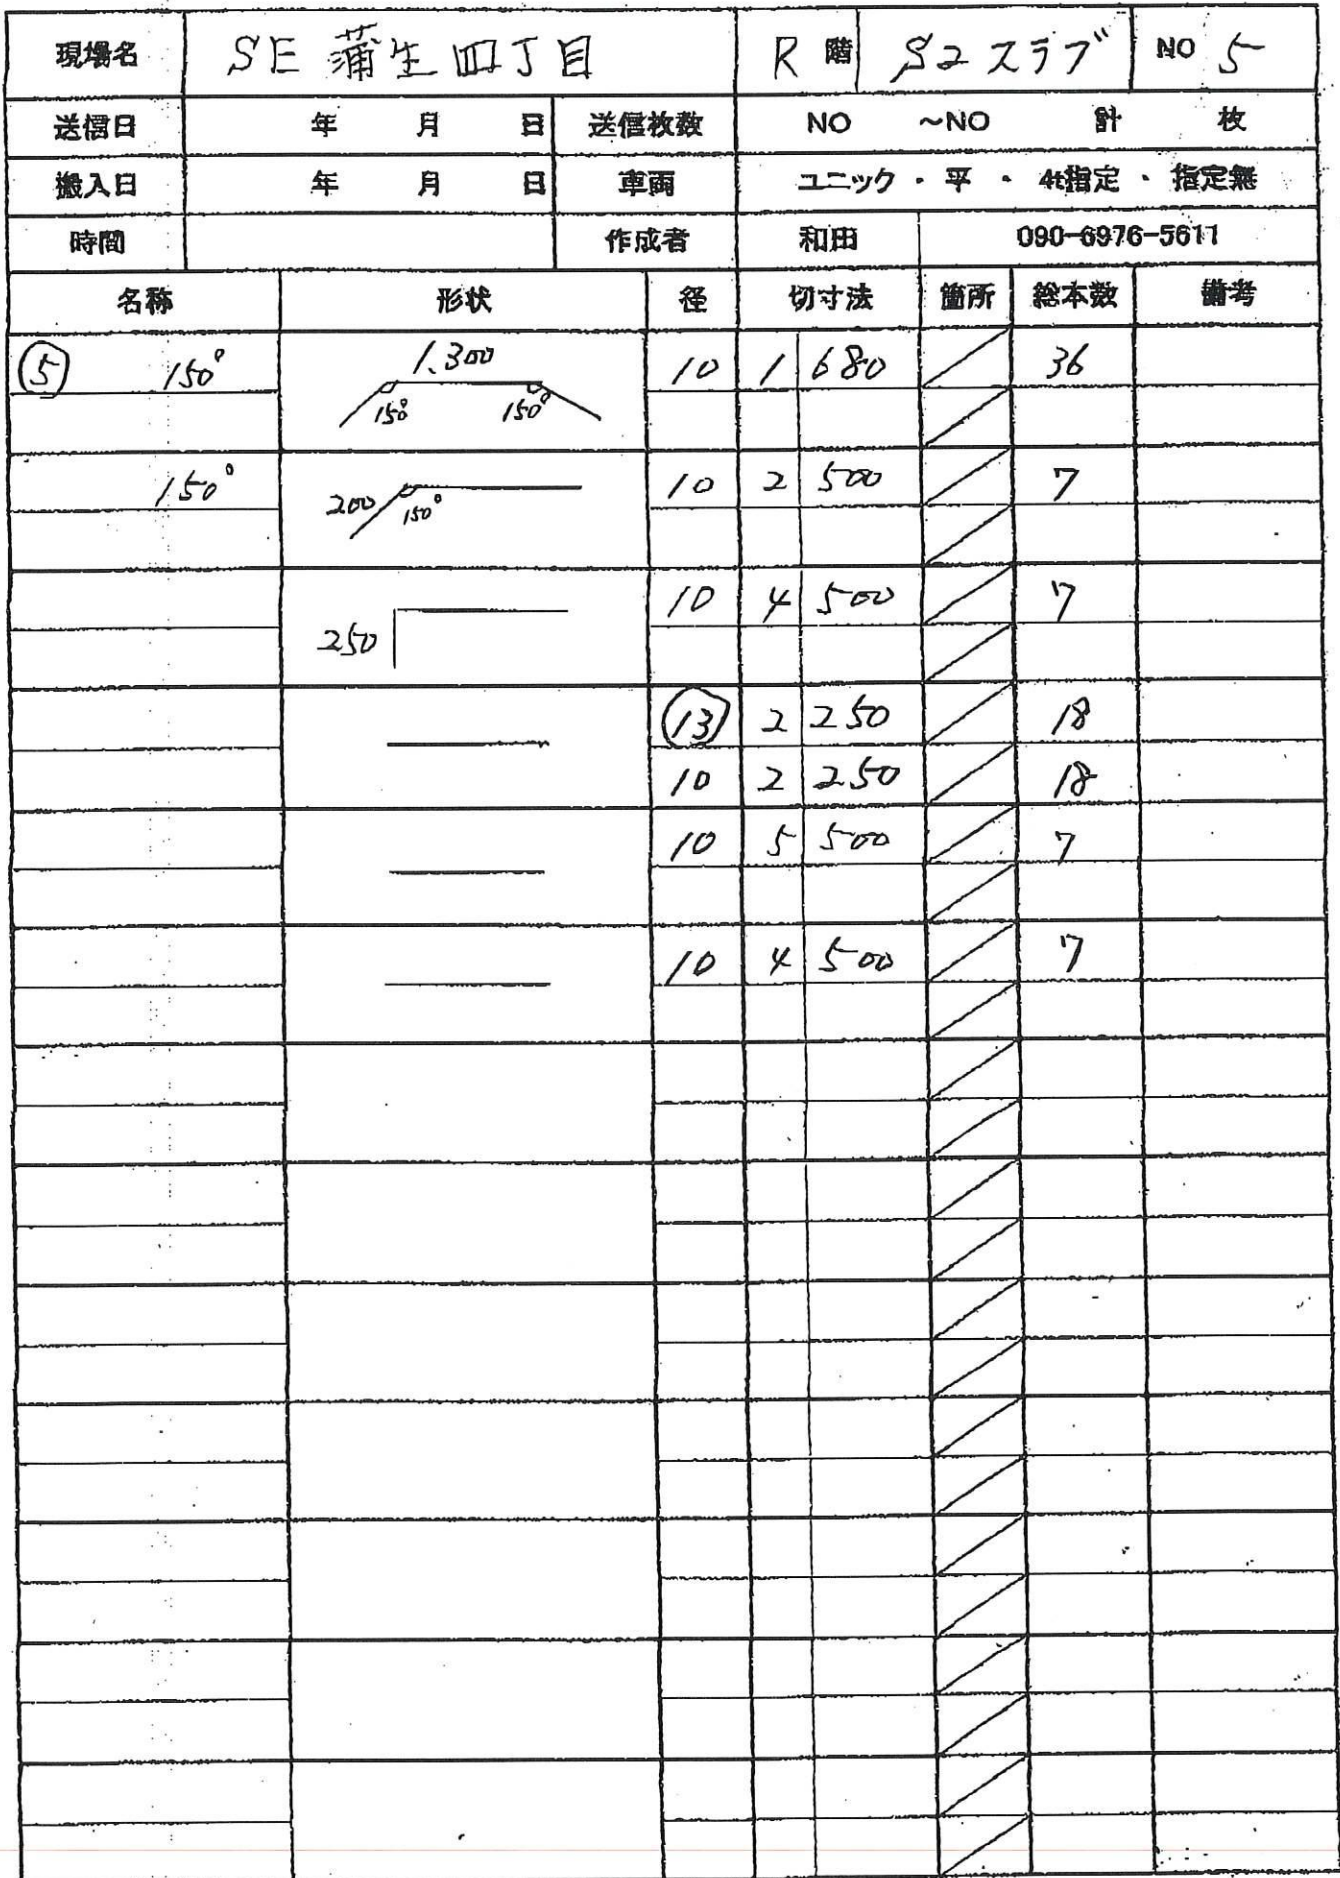 現場名 SE 蒲生四丁目 R 階 S2スラブ NO 5
送信日 年 月 日 送信枚数 NO ~NO 計 枚
搬入日 年 月 日 車両 ユニック・平・4t指定・指定無
時間 作成者 和田 090-6976-5611
名称 形状 径 切寸法 箇所 総本数 備考
⑤ 150° 1.300 10 1 680 36
150° 150°
150° 200 150° 10 2 500 7
250 10 4 500 7
⑬ 2 250 18
10 2 250 18
10 5 500 7
10 4 500 7